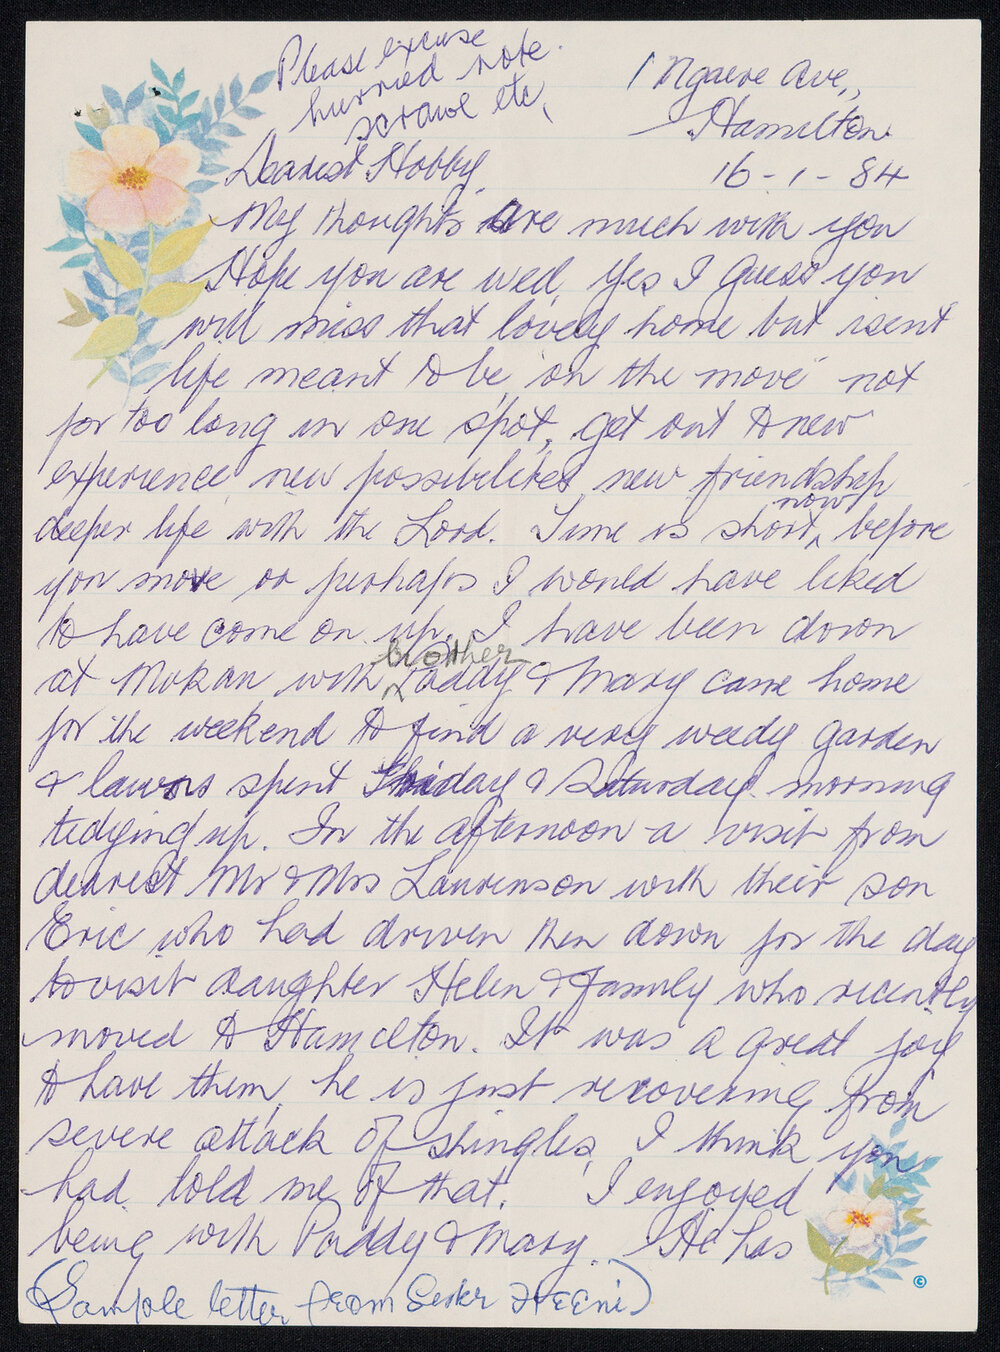 Please excuse
hurried note
scrawl etc,
1 Ngaere Ave.,
Hamilton
16-1-84
Dearest Hobby,
My thoughts are much with you
Hope you are well, Yes I guess you
will miss that lovely home but isent
life meant to be 'on the move' not
for too long in one spot, get out to new
experience, new possibilities new friendship
deeper life with the Lord. Time is short now before
you move or perhaps I would have liked
to have come on up. I have been down
at Mokau with brother Paddy & Mary came home
for the weekend to find a very weedy garden
& lawns spent Friday & Saturday morning
tidying up. In the afternoon - a visit from
dearest Mr & Mrs Laurenson with their son
Eric who had driven then down for the day
to visit daughter Helen & family who recently
moved to Hamilton. It was a great joy
to have them, he is just recovering from
severe attack of shingles, I think you
had told me of that. I enjoyed
being with Paddy & Mary. He has
(Sample letter from Sister Heeni)
©